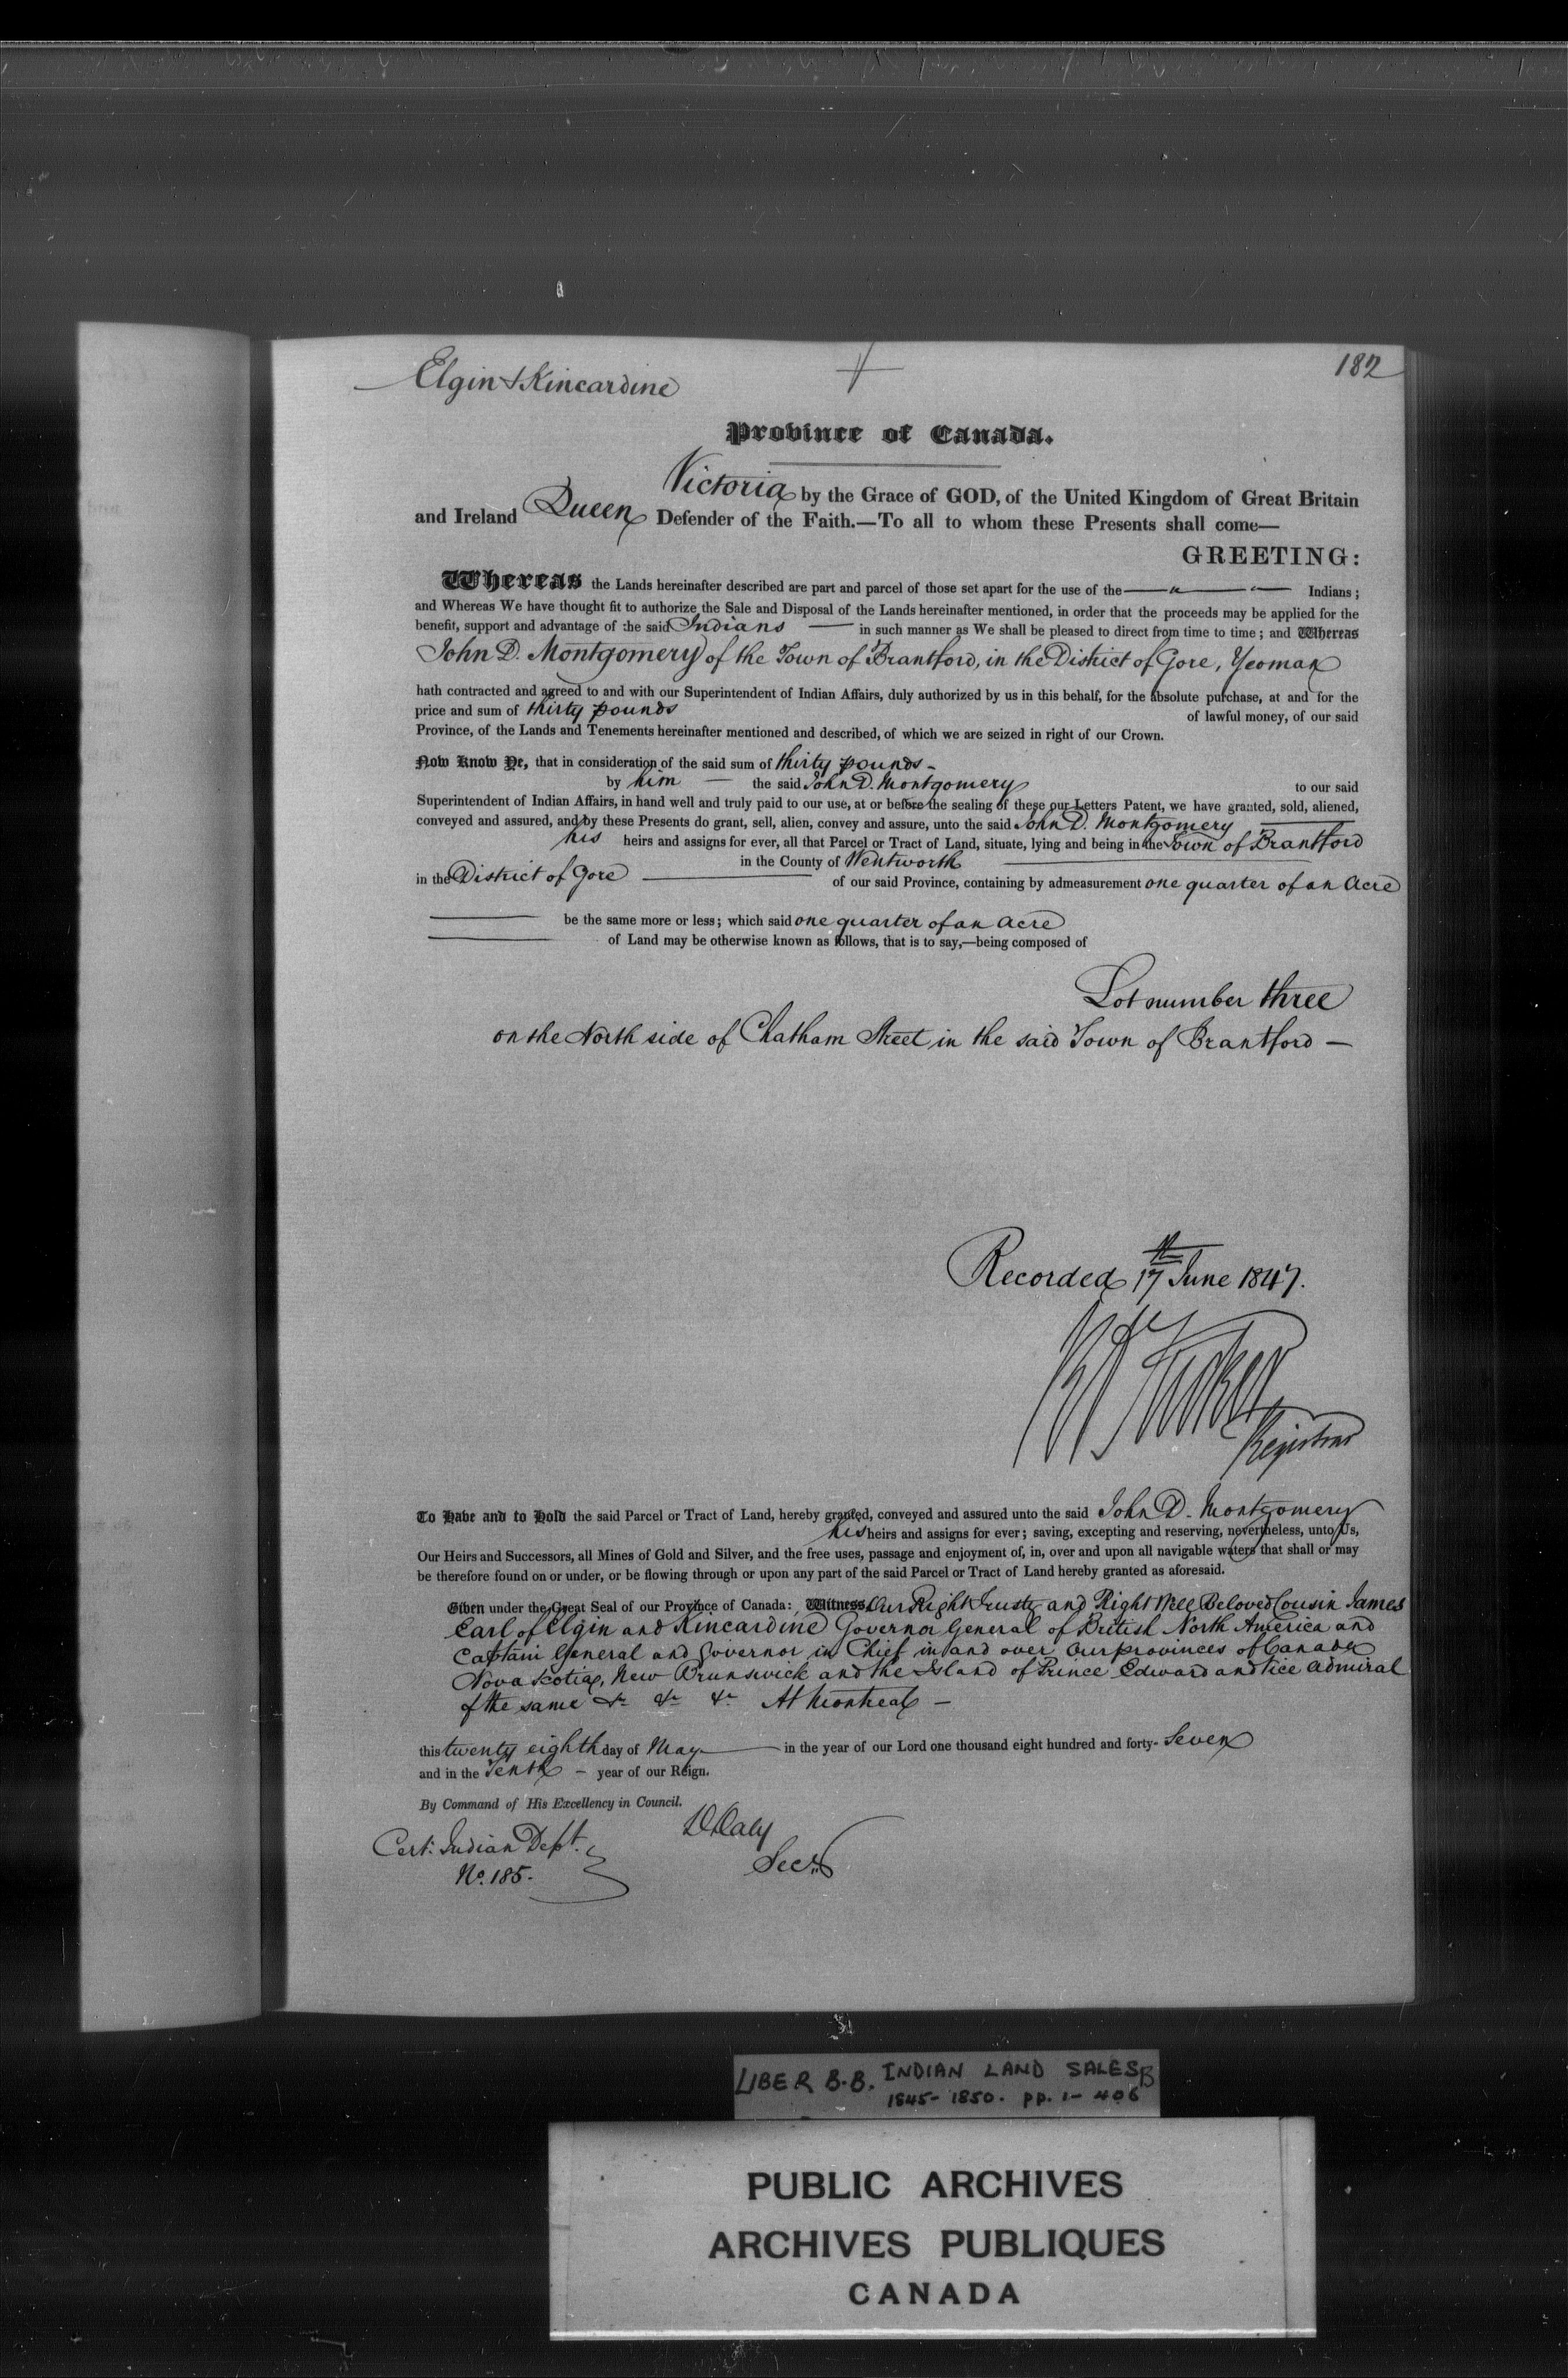 Elgin & Kincardine
182
Province of Canada.
Victoria by the Grace of GOD, of the United Kingdom of Great Britain
and Ireland Queen Defender of the Faith.—To all to whom these Presents shall come—
GREETING:
Whereas the Lands hereinafter described are part and parcel of those set apart for the use of the — " — " — Indians;
and Whereas We have thought fit to authorize the Sale and Disposal of the Lands hereinafter mentioned, in order that the proceeds may be applied for the
benefit, support and advantage of the said Indians — in such manner as We shall be pleased to direct from time to time; and Whereas
John D. Montgomery of the Town of Brantford, in the District of Gore, Yeoman
hath contracted and agreed to and with our Superintendent of Indian Affairs, duly authorized by us in this behalf, for the absolute purchase, at and for the
price and sum of thirty pounds of lawful money, of our said
Province, of the Lands and Tenements hereinafter mentioned and described, of which we are seized in right of our Crown.
Now Know Ye, that in consideration of the said sum of thirty pounds -
by him — the said John D. Montgomery to our said
Superintendent of Indian Affairs, in hand well and truly paid to our use, at or before the sealing of these our Letters Patent, we have granted, sold, aliened,
conveyed and assured, and by these Presents do grant, sell, alien, convey and assure, unto the said John D. Montgomery —
his heirs and assigns for ever, all that Parcel or Tract of Land, situate, lying and being in the Town of Brantford
in the County of Wentworth —
in the District of Gore — of our said Province, containing by admeasurement one quarter of an Acre
— be the same more or less; which said one quarter of an Acre
— of Land may be otherwise known as follows, that is to say,—being composed of
Lot number three
on the North side of Chatham Street, in the said Town of Brantford —
Recorded 17th June 1847.
Tucker
Registrar
To Have and to Hold the said Parcel or Tract of Land, hereby granted, conveyed and assured unto the said John D. Montgomery
his heirs and assigns for ever; saving, excepting and reserving, nevertheless, unto Us,
Our Heirs and Successors, all Mines of Gold and Silver, and the free uses, passage and enjoyment of, in, over and upon all navigable waters that shall or may
be therefore found on or under, or be flowing through or upon any part of the said Parcel or Tract of Land hereby granted as aforesaid.
Given under the Great Seal of our Province of Canada: Witness, Our Right Trusty and Right Well Beloved Cousin James
Earl of Elgin and Kincardine Governor General of British North America and
Captain General and Governor in Chief in and over Our provinces of Canada
Nova Scotia, New Brunswick and the Island of Prince Edward and Vice Admiral
of the same &c &c &c At Montreal —
this twenty eighth day of May — in the year of our Lord one thousand eight hundred and forty- Seven
and in the Tenth - year of our Reign.
By Command of His Excellency in Council.
D. Daly
Secy.
Cert. Indian Dept.
No. 185.
LIBER B.B. INDIAN LAND SALES B
1845- 1850. pp. 1- 406
PUBLIC ARCHIVES
ARCHIVES PUBLIQUES
CANADA